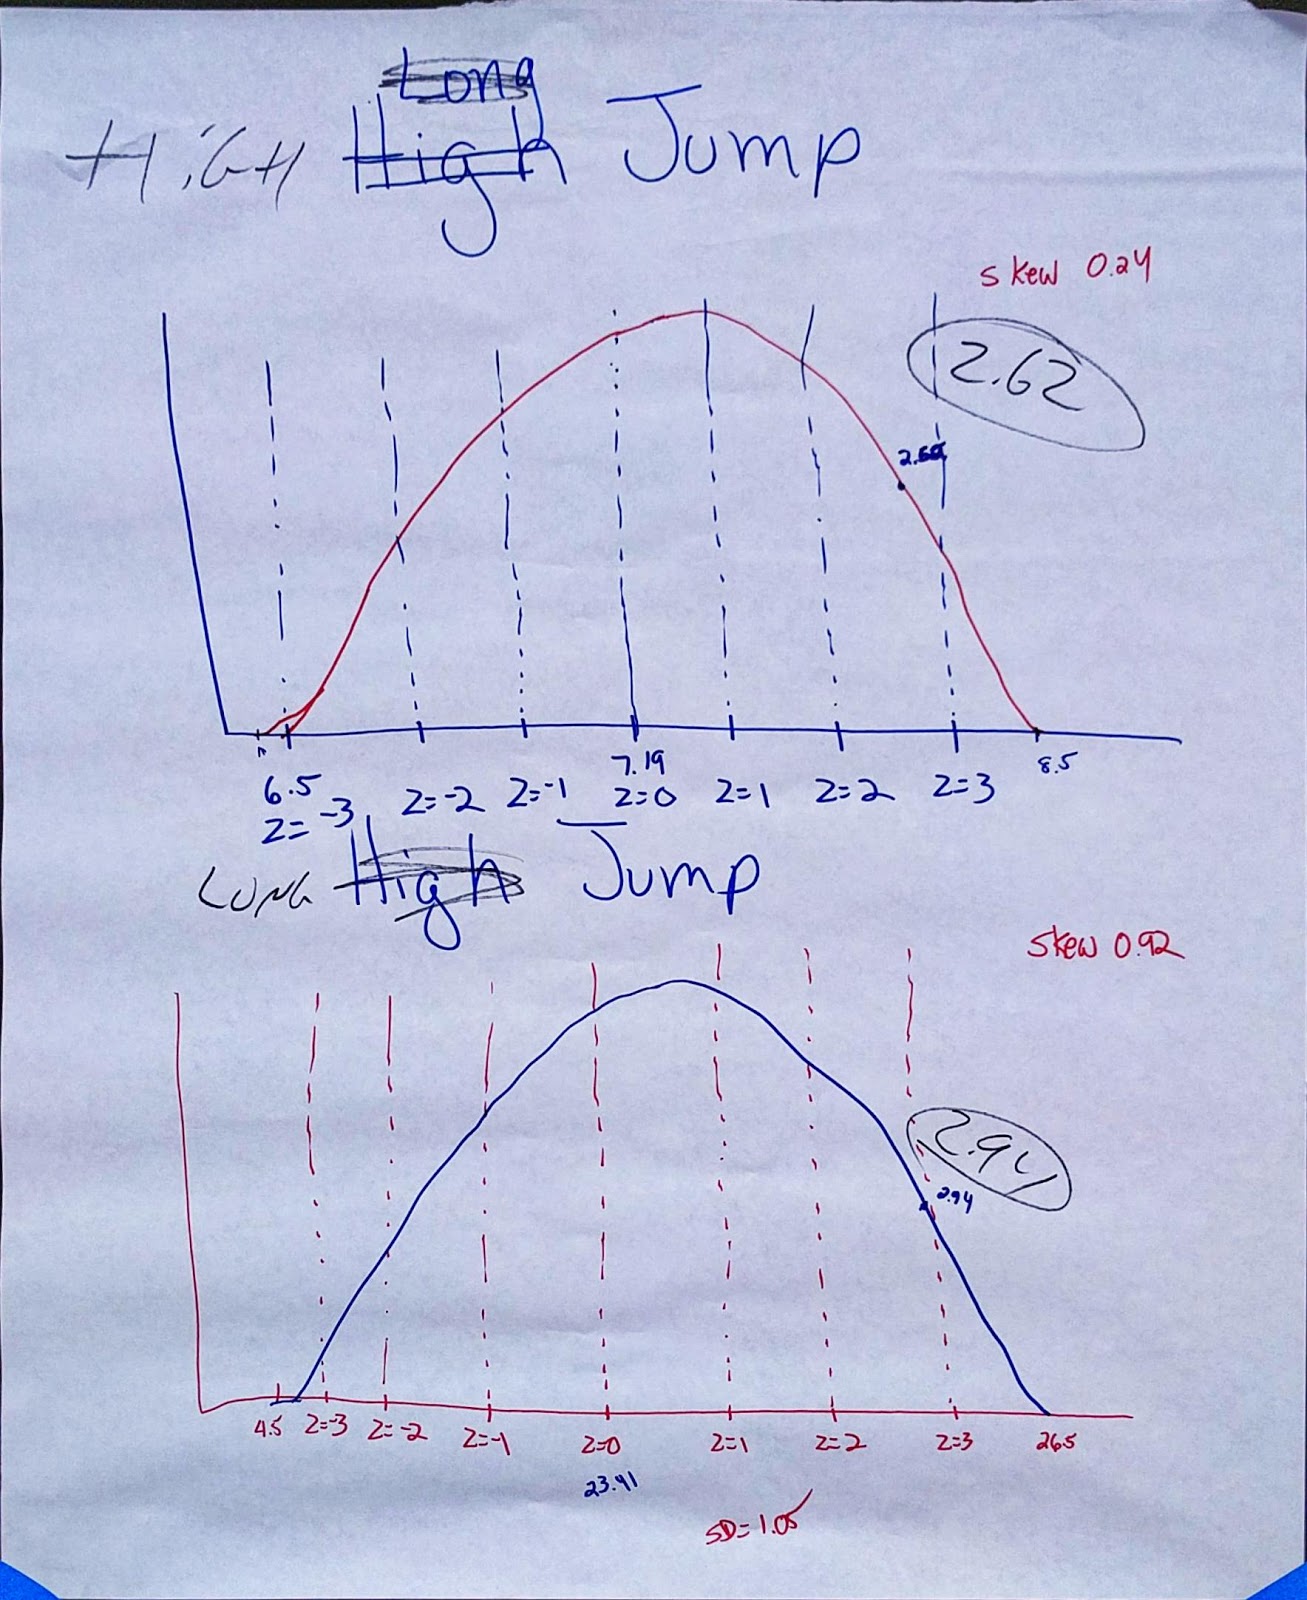 Long
HiGH High Jump
skew 0.24
2.62
6.5
7.19
8.5
Z= -3
Z=-2
Z=-1
Z=0
Z=1
Z=2
Z=3
LONG High Jump
Skew 0.92
2.94
2.94
4.5 Z=-3 Z=-2 Z=-1 Z=0 Z=1 Z=2 Z=3 26.5
23.41
SD=1.05